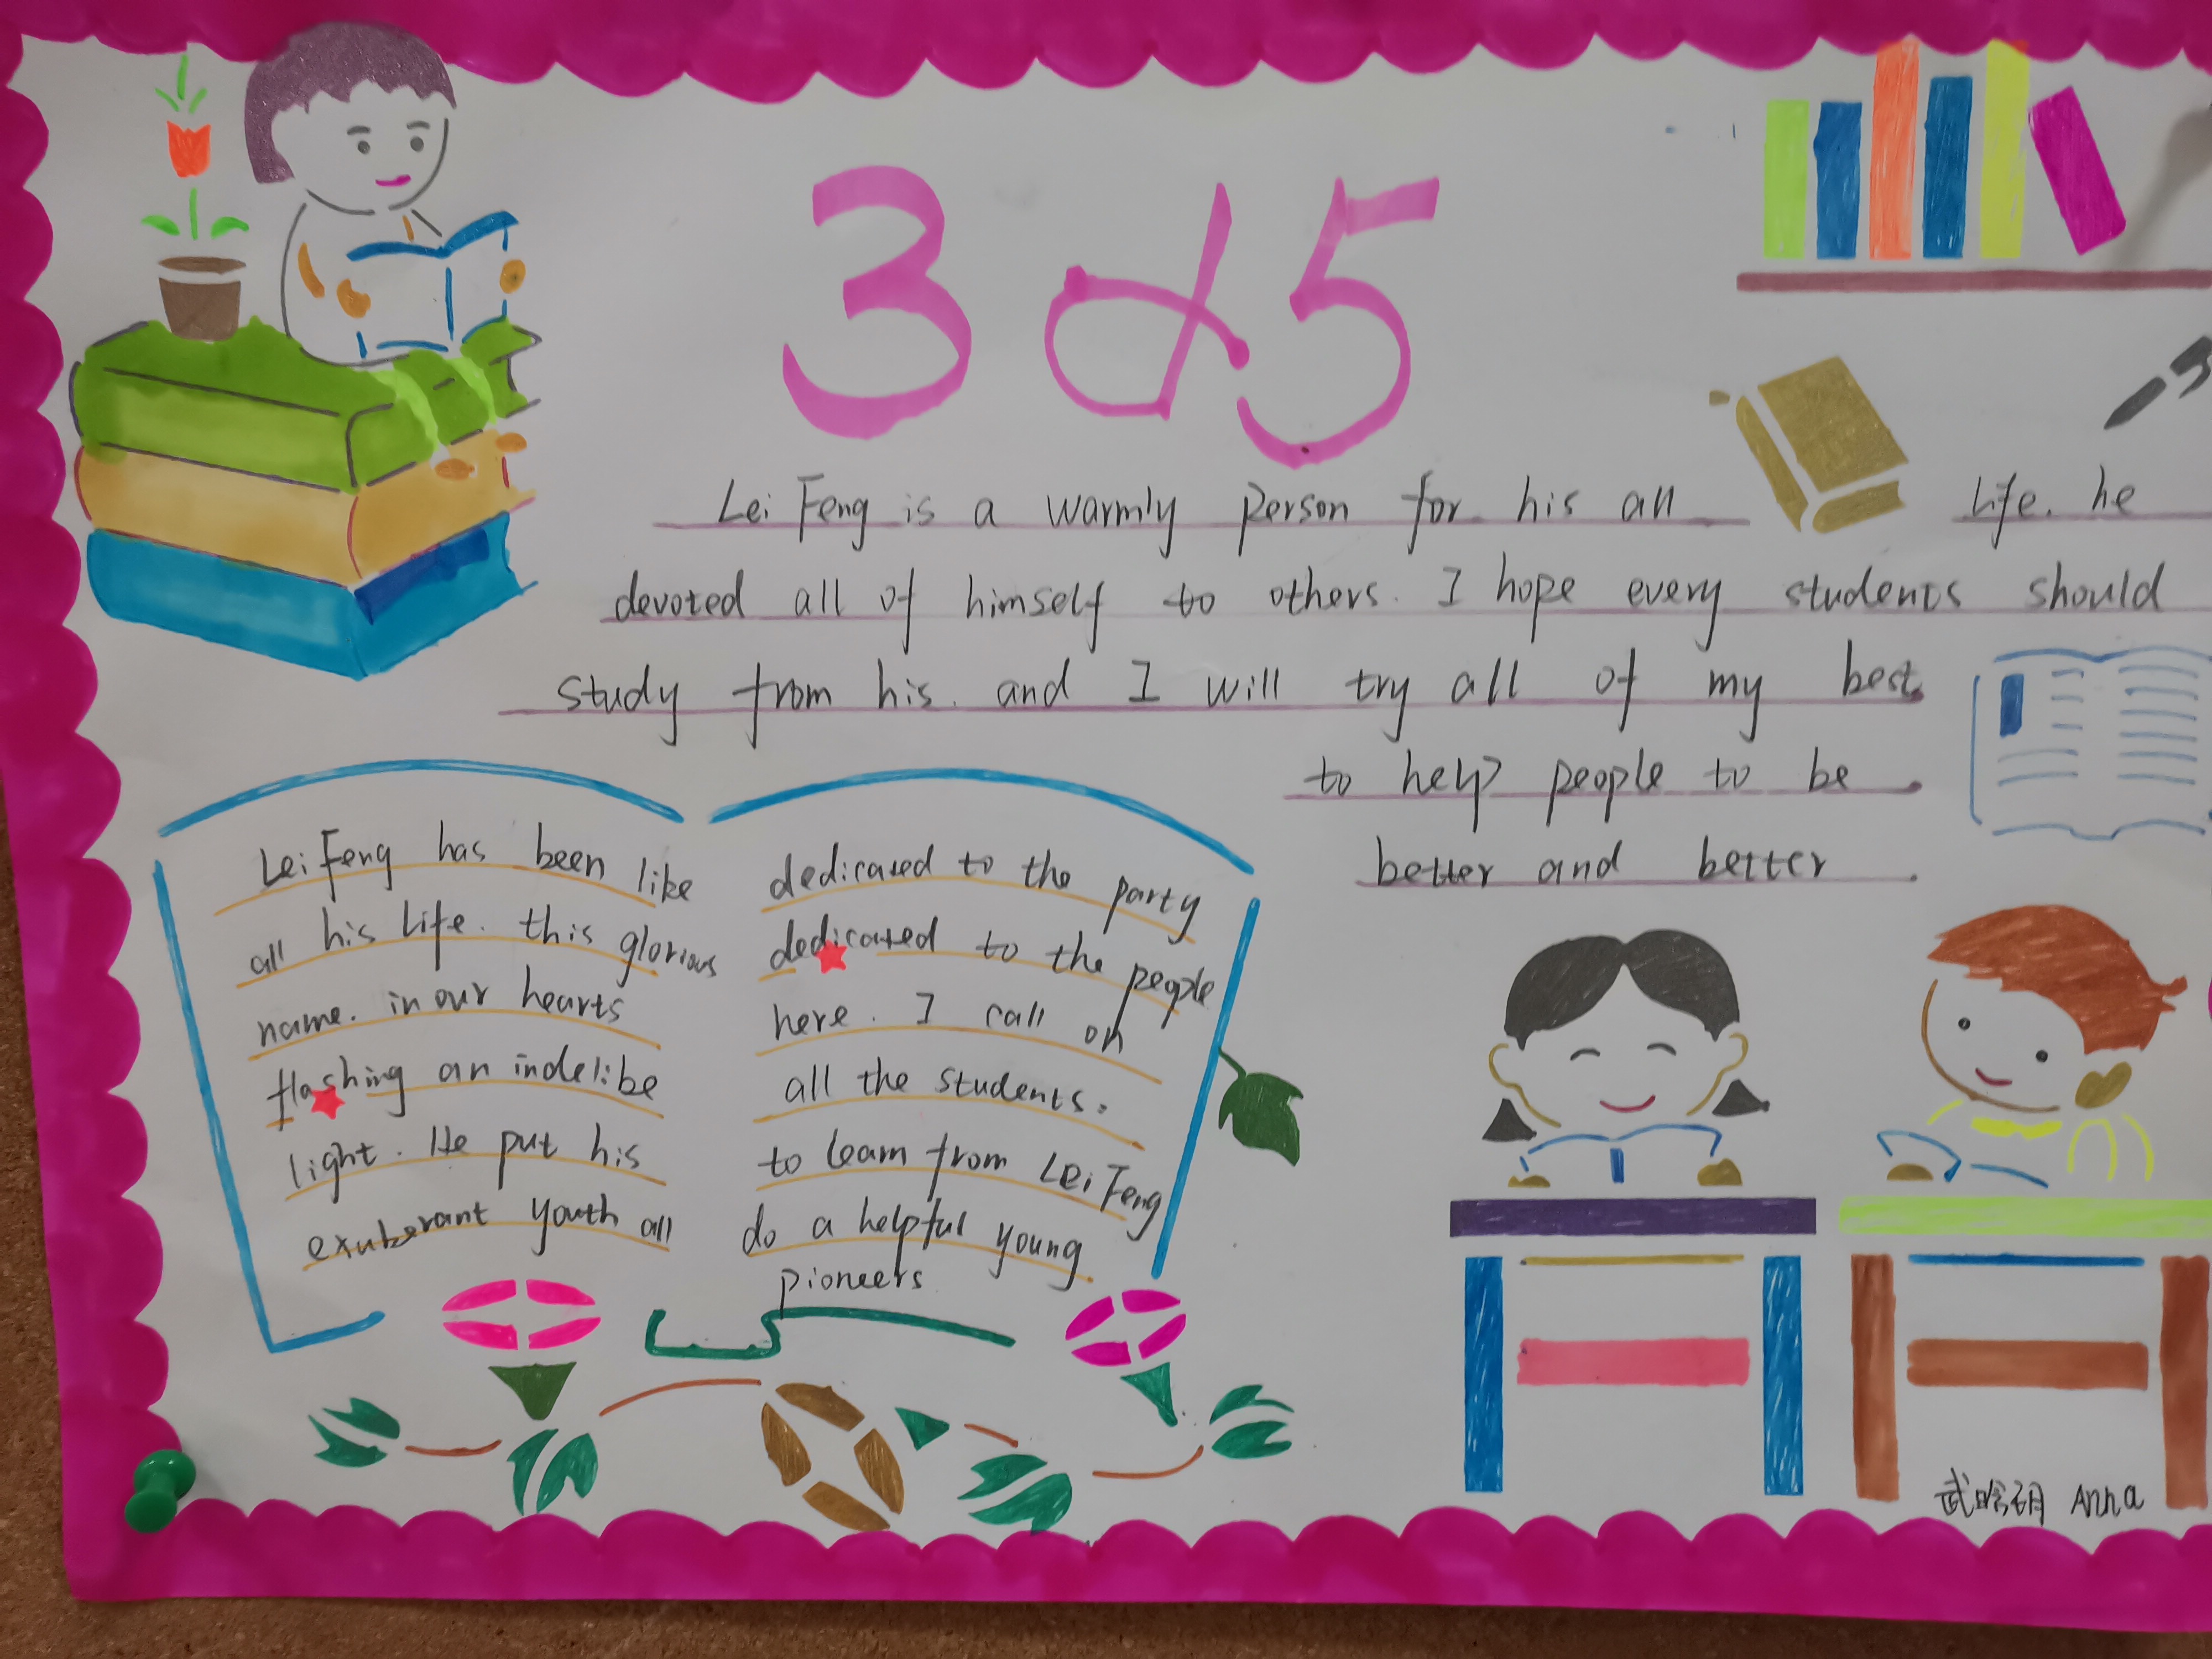 3 & 5
Lei Feng is a warmly person for his all life. he
devoted all of himself to others. I hope every students should
study from his. and I will try all of my best
to help people to be
better and better
Lei Feng has been like
all his life. this glorious
name. in our hearts
flashing an indelibe
light. He put his
exuberant youth all
dedicated to the party
dedicated to the people
here. I call on
all the students.
to learn from Lei Feng
do a helpful young
pioneers
武晗玥 Anna